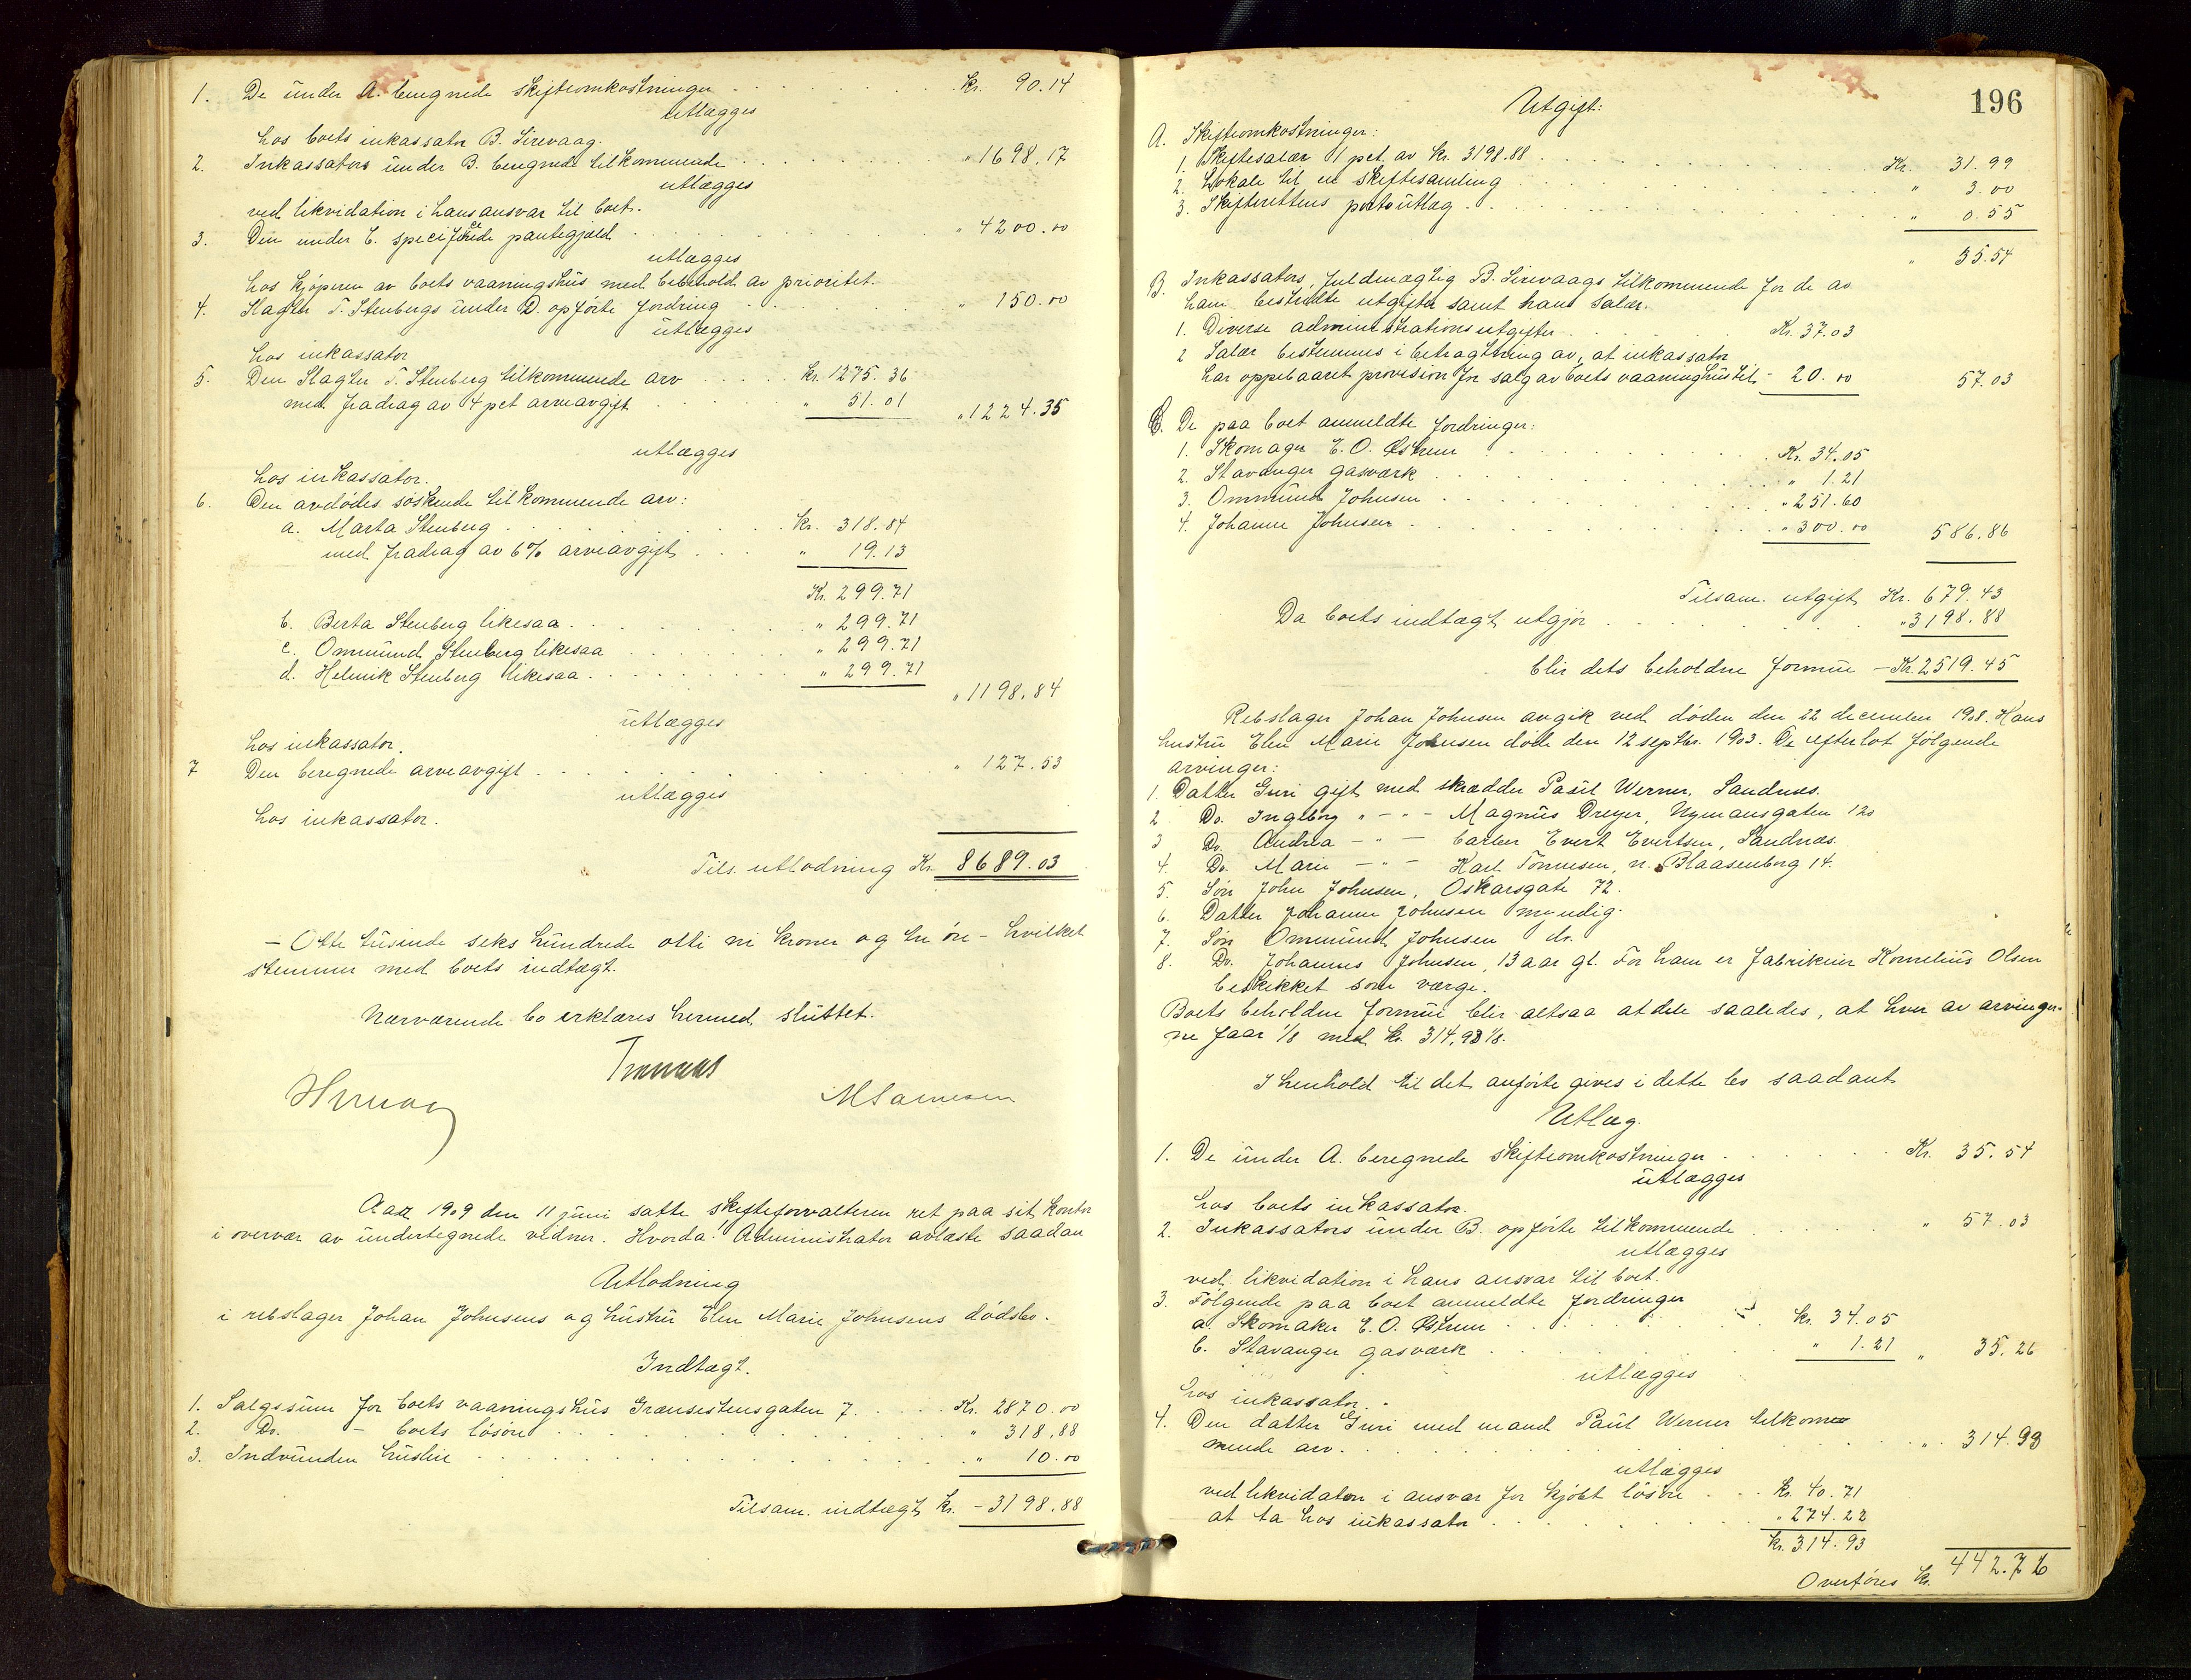 1. De under A. beregnede skifteomkostninger . . . . . . . kr. 90.14
utlægges
hos boets inkassator B. Sirevaag.
2. Inkassators under B. beregnede tilkommende . . . . . „ 1698.17
utlægges
ved likvidation i hans ansvar til boet.
3. Den under C. specificede pantegjæld . . . . . „ 4200.00
utlægges
hos kjøperen av boets vaaningshus med bibehold av prioritet.
4. Slagter T. Stenbergs under D. opførte fordring . . . „ 150.00
utlægges
hos inkassator
5. Den Slagter T. Stenberg tilkommende arv . . . kr. 1275.36
med fradrag av 4 pct arveavgift . . . „ 51.01 „ 1224.35
utlægges
hos inkassator.
6. Den avdødes søskende tilkommende arv:
a. Marta Stenberg . . . . . kr. 318.84
med fradrag av 6% arveavgift . . . „ 19.13
Kr. 299.71
b. Berta Stenberg likesaa . . . . „ 299.71
c. Ommund Stenberg likesaa . . . . „ 299.71
d. Helmik Stenberg likesaa . . . . „ 299.71
„ 1198.84
utlægges
hos inkassator.
7 Den beregnede arveavgift . . . . . „ 127.53
utlægges
hos inkassator.
Tils. utlodning Kr. 8689.03
– Otte tusinde seks hundrede otti ni kroner og tre øre – hvilket
stemmer med boets indtægt.
Nærværende bo erklæres hermed sluttet.
Aar 1909 den 11 juni satte skifteforvalteren ret paa sit kontor
i overvær av undertegnede vidner. Hvorda: Administrator avlæste saadan
Utlodning
i rebslager Johan Johnsens og hustru Elen Marie Johnsens dødsbo.
Indtægt.
1. Salgssum for boets vaaningshus Grænsestensgaten 7. . . . Kr. 2870.00
2. Do. – boets løsøre . . . . . „ 318.88
3. Indvunden husleie . . . . . „ 10.00
Tilsam. indtægt kr. – 3198.88
196
Utgift:
A. Skifteomkostninger:
1. Skiftesalær 1 pct. av kr. 3198.88 . . . . . Kr. 31.99
2. Lokale til en skiftesamling . . . . . „ 3.00
3. Skifterettens portoutlæg . . . . . „ 0.55
„ 35.54
B. Inkassators, fuldmægtig B. Sirevaags tilkommende for de av
ham bestridte utgifter samt hans salær.
1. Diverse administrationsutgifter . . . . Kr. 37.03
2 Salær bestemmes i betragtning av, at inkassator
har oppebaaret provision for salg av boets vaaningshus til – 20.00 57.03
C. De paa boet anmeldte fordringer:
1. Skomager E. O. Østrem . . . . . Kr. 34.05
2. Stavanger gasværk . . . . . „ 1.21
3. Ommund Johnsen . . . . . „ 251.60
4. Johanne Johnsen . . . . . „ 300.00 586.86
Tilsam. utgift Kr. 679.43
Da boets indtægt utgjør . . . . . „ 3198.88
blir dets beholdne formue – Kr. 2519.45
Rebslager Johan Johnsen avgik ved døden den 22 december 1908. Hans
hustru Elen Marie Johnsen døde den 12 septbr. 1903. De efterlot følgende
arvinger:
1. Datter Guri gift med skrædder Paul Werner, Sandnæs.
2 Do. Ingeborg „ – „ – Magnus Dreyer, Nymansgaten 120
3 Do. Andrea – „ – barber Evert Evertsen, Sandnæs.
4. Do. Marie – „ – Karl Tønnesen, n. Blaasenborg 14.
5. Søn John Johnsen, Oskarsgate 72.
6. Datter Johanne Johnsen myndig.
7. Søn Ommund Johnsen do.
8. Do. Johannes Johnsen, 13 aar gl. For ham er fabrikeier Kornelius Olsen
beskikket som værge.
Boets beholdne formue blir altsaa at dele saaledes, at hver av arvinger-
ne faar 1/8 med kr. 314.93 1/8.
I henhold til det anførte gives i dette bo saadant
Utlæg.
1. De under A. beregnede skifteomkostninger . . . . Kr. 35.54
utlægges
hos boets inkassator.
2. Inkassators under B. opførte tilkommende . . . . „ 57.03
utlægges
ved likvidation i hans ansvar til boet.
3. Følgende paa boet anmeldte fordringer
a. Skomaker E. O. Østrem . . . . kr. 34.05
b. Stavanger gasværk . . . . „ 1.21 „ 35.26
utlægges
hos inkassator.
4. Den datter Guri med mand Paul Werner tilkom-
mende arv . . . . . „ 314.93
utlægges
ved likvidation i ansvar for kjøbt løsøre . . . kr. 40.71
at ta hos inkassator . . . . „ 274.22
kr. 314.93
Overføres kr. 442.76